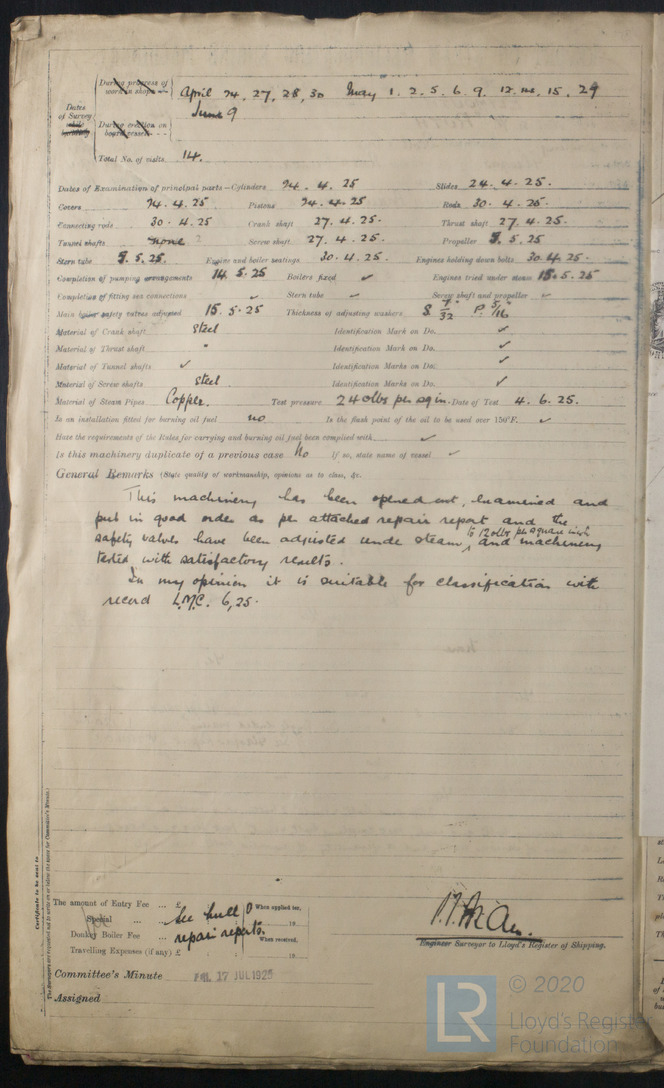 During progress of work in shops - - April 24, 27, 28, 30 May 1. 2. 5. 6. 9. 12. 14. 15. 29
June 9
Dates of Survey while building
During erection on board vessel - - -
Total No. of visits 14.
Dates of Examination of principal parts—Cylinders 24. 4. 25 Slides 24. 4. 25.
Covers 24. 4. 25 Pistons 24. 4. 25 Rods 30. 4. 25.
Connecting rods 30. 4. 25 Crank shaft 27. 4. 25. Thrust shaft 27. 4. 25.
Tunnel shafts none Screw shaft 27. 4. 25. Propeller 5. 5. 25
Stern tube 5. 5. 25. Engine and boiler seatings 30. 4. 25. Engines holding down bolts 30. 4. 25.
Completion of pumping arrangements 14. 5. 25 Boilers fixed ✓ Engines tried under steam 15. 5. 25
Completion of fitting sea connections ✓ Stern tube ✓ Screw shaft and propeller ✓
Main boiler safety valves adjusted 15. 5. 25 Thickness of adjusting washers S 7/32 P. 5/16"
Material of Crank shaft Steel Identification Mark on Do. ✓
Material of Thrust shaft " Identification Mark on Do. ✓
Material of Tunnel shafts ✓ Identification Marks on Do. ✓
Material of Screw shafts Steel Identification Marks on Do. ✓
Material of Steam Pipes Copper. Test pressure 240lbs per sq in. Date of Test 4. 6. 25.
Is an installation fitted for burning oil fuel no Is the flash point of the oil to be used over 150°F. ✓
Have the requirements of the Rules for carrying and burning oil fuel been complied with ✓
Is this machinery duplicate of a previous case No If so, state name of vessel ✓
General Remarks (State quality of workmanship, opinions as to class, &c.
This machinery has been opened out, Examined and
put in good order as per attached repair report and the
safety valves have been adjusted under steam, to 120lbs per square inch and machinery
tested with satisfactory results.
In my opinion it is suitable for classification with
record L.M.C. 6,25.
Certificate to be sent to
The Surveyors are requested not to write on or below the space for Committee's Minute.
The amount of Entry Fee ... £ When applied for,
Special ... ... £ See hull 19
Donkey Boiler Fee ... £ repair reports. When received,
Travelling Expenses (if any) £ 19
Engineer Surveyor to Lloyd's Register of Shipping.
Committee's Minute FRI. 17 JUL 1925
Assigned
LR © 2020
Lloyd's Register
Foundation